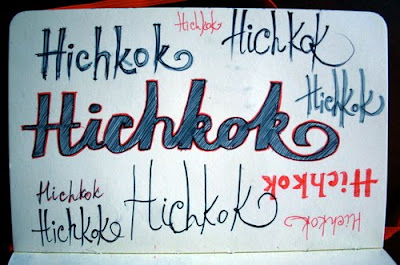 Hichkok
Hichkok
Hichkok
Hichkok
Hichkok
Hichkok
Hichkok
Hichkok
Hichkok
Hichkok